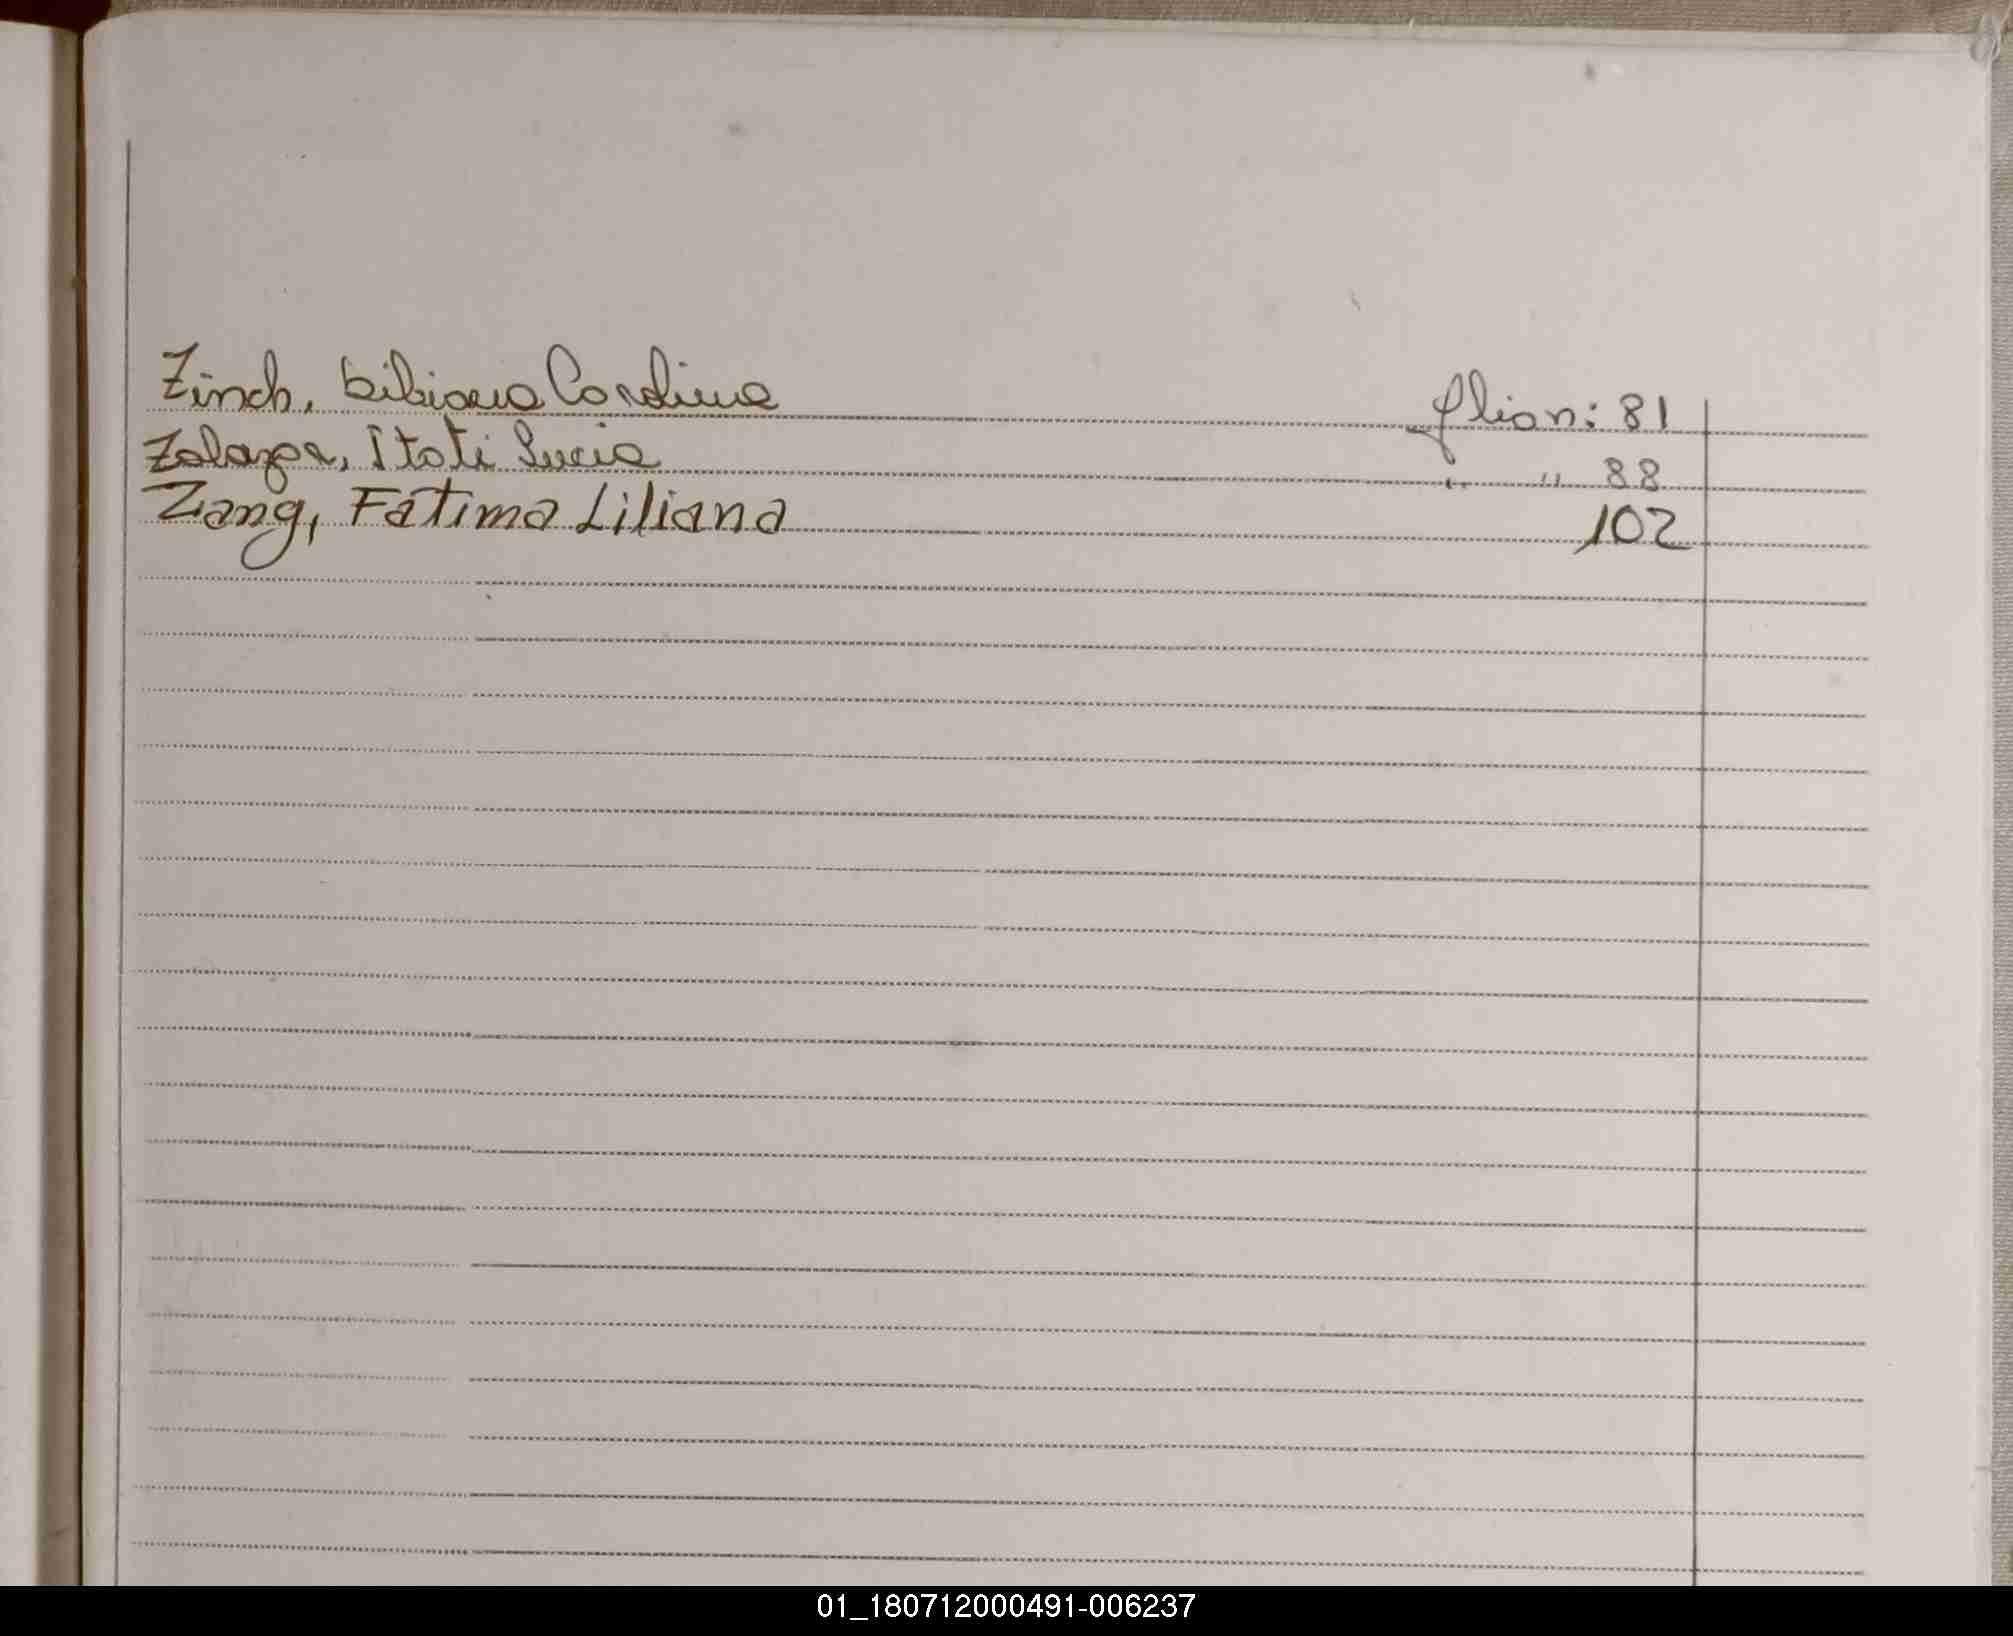 Zinch, Bibiana Carolina folio n: 81
Zalazar, Itati Lucia " " 88
Zang, Fatima Liliana 102
01_180712000491-006237